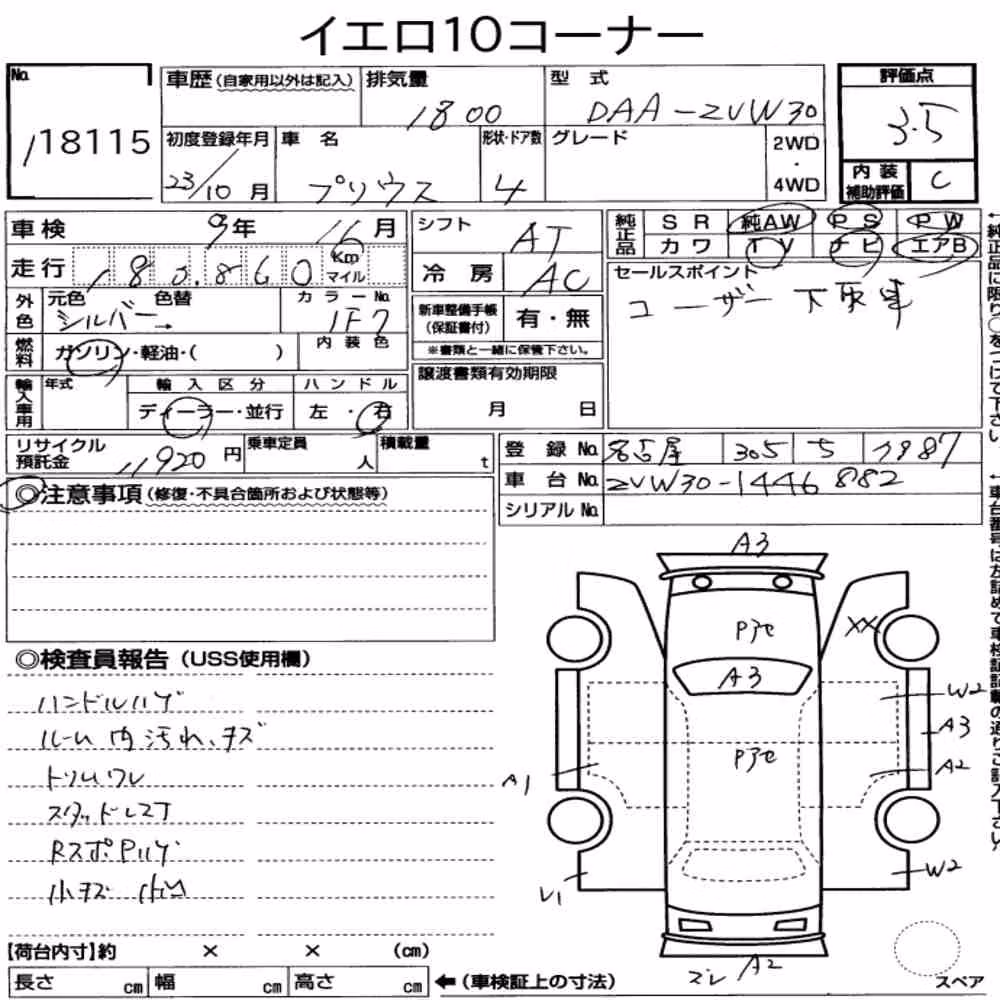 イエロ10コーナー
No. 118115
車歴 (自家用以外は記入)
排気量 1800
型式 DAA-ZVW30
評価点 3.5
初度登録年月 23/10月
車名 プリウス
形状・ドア数 4
グレード
2WD・4WD
内装補助評価 C
車検 9年 16月
シフト AT
純正品 SR 純AW PS PW
カワ TV ナビ エアB
走行 180,860 Km マイル
冷房 AC
セールスポイント
ユーザー下取車
外色 元色 シルバー→ 色替
カラーNo. 1F7
新車整備手帳(保証書付) 有・無
※書類と一緒に保管下さい。
燃料 ガソリン・軽油・( )
内装色
譲渡書類有効期限
月 日
輸入車用 年式
輸入区分 ディーラー・並行
ハンドル 左・右
リサイクル預託金 11920円
乗車定員 人
積載量 t
登録No. 名古屋 305 ち 7987
車台No. ZVW30-1446882
シリアルNo.
◎注意事項 (修復・不具合箇所および状態等)
◎検査員報告 (USS使用欄)
ハンドルハゲ
ルーム内汚れ、キズ
トリムワレ
スタッドレス
RスポPハゲ
小キズ 小凹
A3
Pアセ
XX
A3
W2
A3
Pアセ
A1
A2
V1
W2
ズレ A2
スペア
【荷台内寸】約 × × (cm)
長さ cm 幅 cm 高さ cm ←(車検証上の寸法)
←純正品に限り○をつけて下さい。
←車台番号は左詰めで車検証記載の通りご記入下さい。